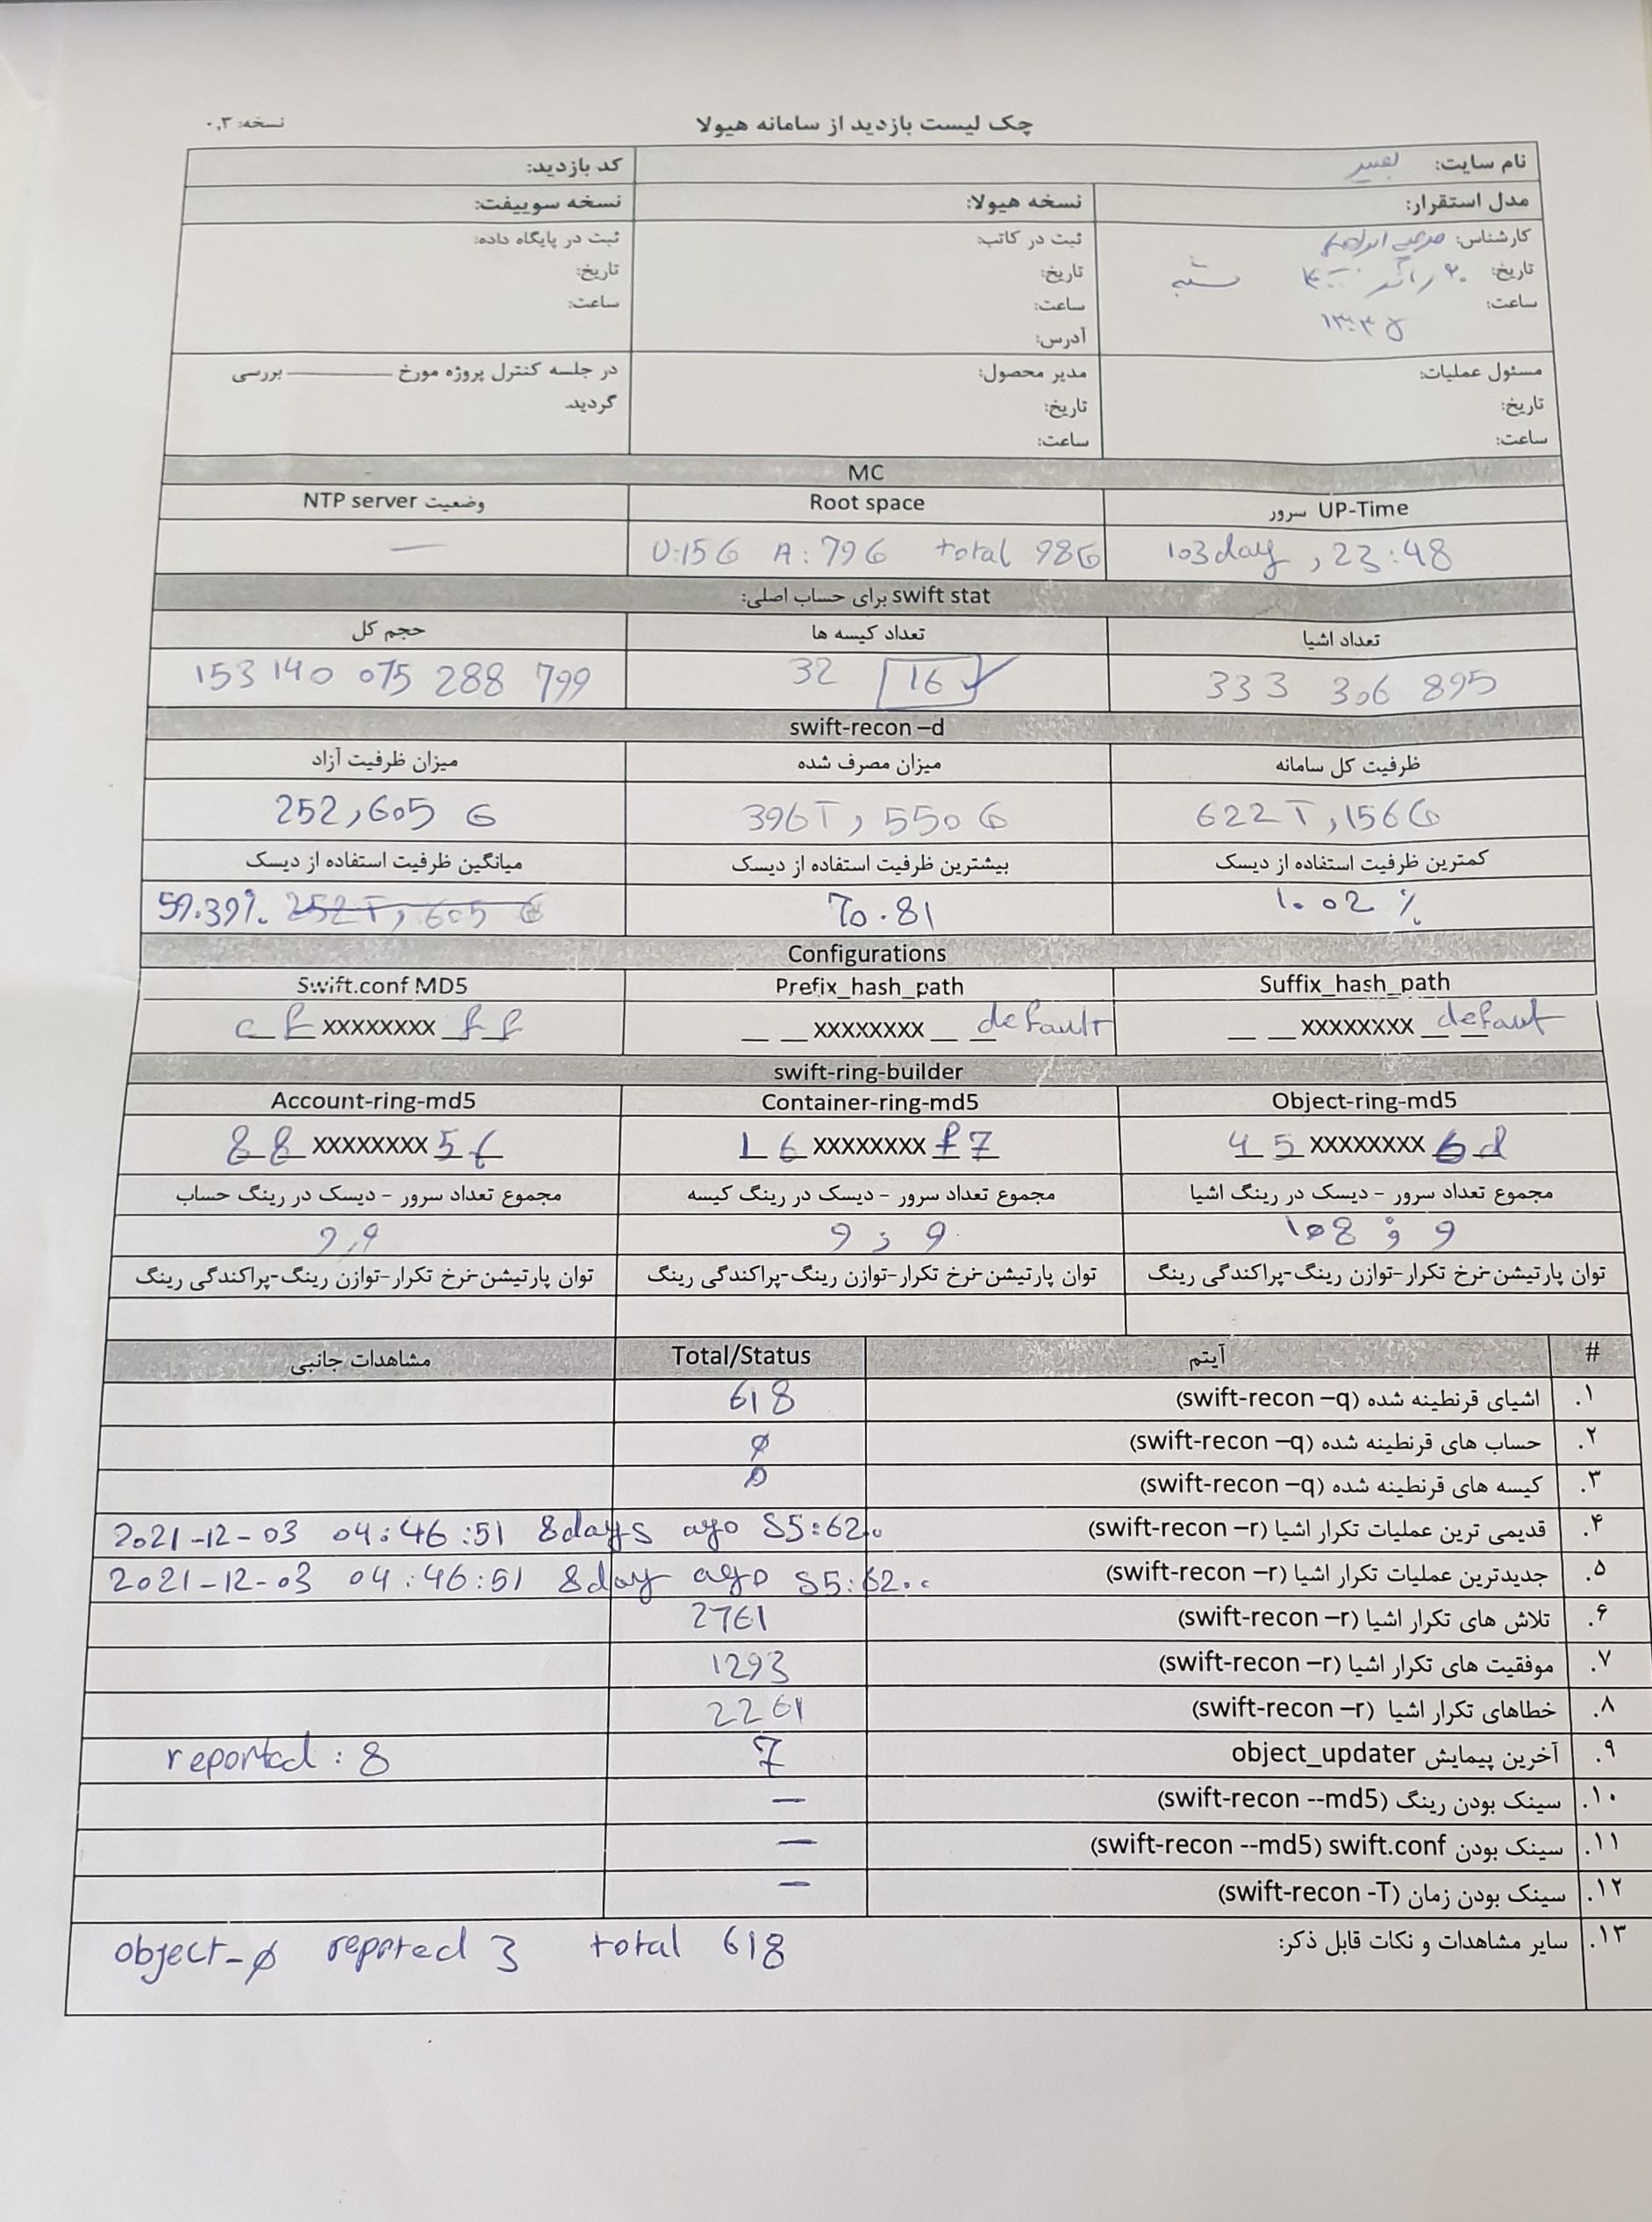 چک لیست بازدید از سامانه هیولا
نسخه: ۰,۳
نام سایت: بصیر
کد بازدید:
مدل استقرار:
نسخه هیولا:
نسخه سوییفت:
کارشناس:
تاریخ: شنبه
ساعت:
۱۳:۴۵
ثبت در کاتب:
تاریخ:
ساعت:
آدرس:
ثبت در پایگاه داده:
تاریخ:
ساعت:
مسئول عملیات:
تاریخ:
ساعت:
مدیر محصول:
تاریخ:
ساعت:
در جلسه کنترل پروژه مورخ ———— بررسی
گردید.
MC
UP-Time سرور
Root space
وضعیت NTP server
103day , 23:48
U:15G A:79G total 98G
—
swift stat برای حساب اصلی:
تعداد اشیا
تعداد کیسه ها
حجم کل
333 306 895
32 16
153 140 075 288 799
swift-recon –d
ظرفیت کل سامانه
میزان مصرف شده
میزان ظرفیت آزاد
622T,156G
396T, 550G
252,605 G
کمترین ظرفیت استفاده از دیسک
بیشترین ظرفیت استفاده از دیسک
میانگین ظرفیت استفاده از دیسک
1.02 %
70.81
59.39% 252T, 605 G
Configurations
Suffix_hash_path
Prefix_hash_path
Swift.conf MD5
_ _ xxxxxxxx _ _ defaut
_ _ xxxxxxxx _ _ default
c f xxxxxxxx f f
swift-ring-builder
Object-ring-md5
Container-ring-md5
Account-ring-md5
45 xxxxxxxx 6d
16 xxxxxxxx f7
88 xxxxxxxx 5f
مجموع تعداد سرور - دیسک در رینگ اشیا
مجموع تعداد سرور - دیسک در رینگ کیسه
مجموع تعداد سرور - دیسک در رینگ حساب
9 و 108
9 و 9
9,9
توان پارتیشن-نرخ تکرار-توازن رینگ-پراکندگی رینگ
توان پارتیشن-نرخ تکرار-توازن رینگ-پراکندگی رینگ
توان پارتیشن-نرخ تکرار-توازن رینگ-پراکندگی رینگ
# آیتم Total/Status مشاهدات جانبی
۱. اشیای قرنطینه شده (swift-recon –q) 618
۲. حساب های قرنطینه شده (swift-recon –q) ø
۳. کیسه های قرنطینه شده (swift-recon –q) ø
۴. قدیمی ترین عملیات تکرار اشیا (swift-recon –r) 2021-12-03 04:46:51 8days ago S5:62..
۵. جدیدترین عملیات تکرار اشیا (swift-recon –r) 2021-12-03 04:46:51 8day ago S5:62..
۶. تلاش های تکرار اشیا (swift-recon –r) 2761
۷. موفقیت های تکرار اشیا (swift-recon –r) 1293
۸. خطاهای تکرار اشیا (swift-recon –r) 2261
۹. آخرین پیمایش object_updater 7 reported : 8
۱۰. سینک بودن رینگ (swift-recon --md5) —
۱۱. سینک بودن swift.conf (swift-recon --md5) —
۱۲. سینک بودن زمان (swift-recon -T) —
۱۳. سایر مشاهدات و نکات قابل ذکر:
object-ø reported 3 total 618